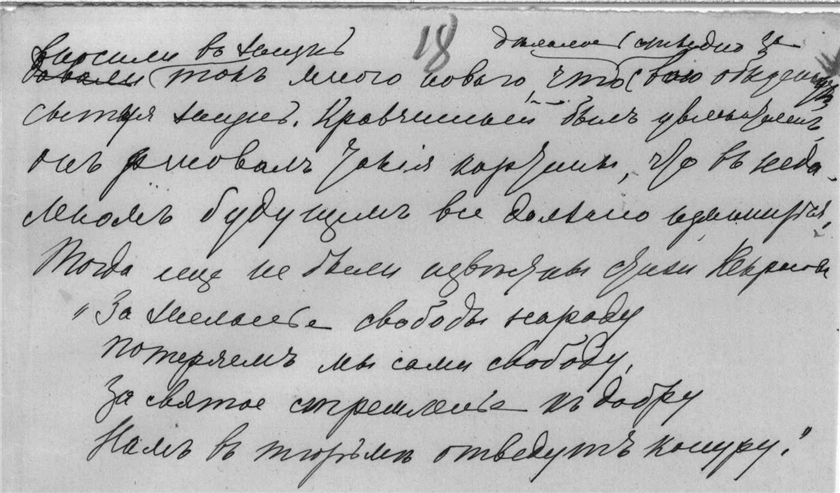 вносили въ жизнь 18 делалось стыдно за
давали такъ много новаго, что свою обыденную
сытую жизнь. Кравчинскій былъ увлекателенъ,
онъ рисовалъ такія картины, что въ неда-
лекомъ будущемъ все должно измениться,
Тогда еще не были известны стихи Некрасова
„За желанье свободы народу
потеряемъ мы сами свободу,
За святое стремленье къ добру
Намъ въ тюрьме отведутъ конуру."